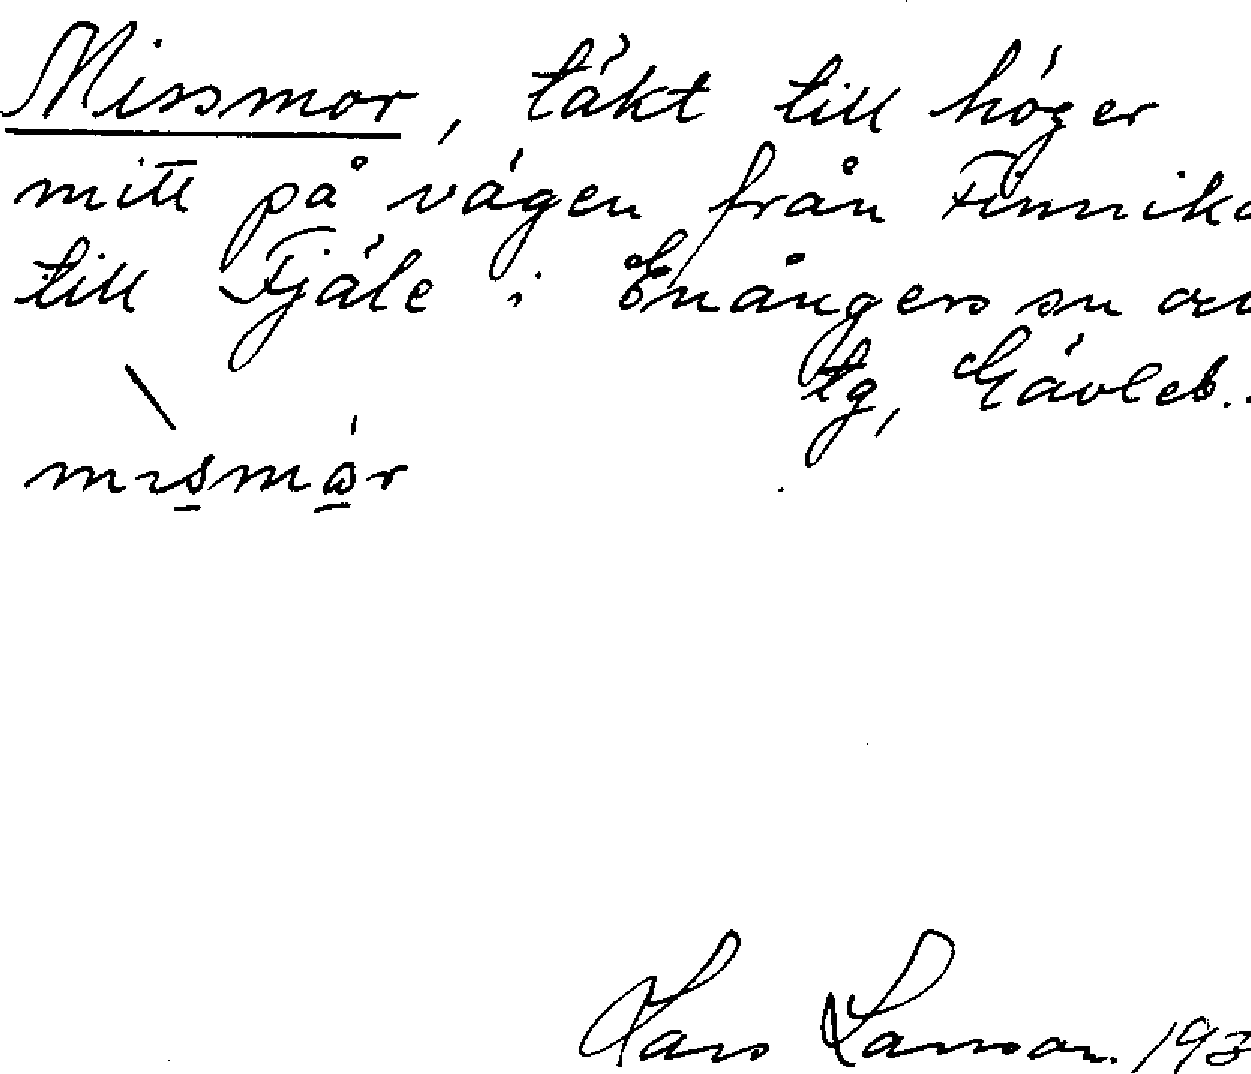 Missmor, täkt till höger
mitt på vägen från Finnika
till Fjäle i Enångers sn oc
tg, Gävleb..
mɪsmår
Lars Larsson. 193